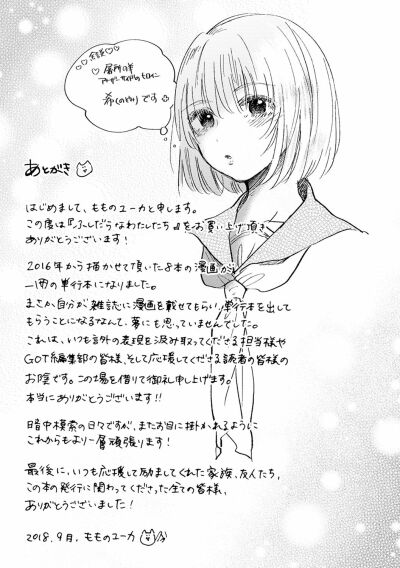 あとがき
はじめまして、もものユーカと申します。
この度は『ふしだらなわたしたち』をお買い上げ頂き
ありがとうございます!
2016年から描かせて頂いた8本の漫画が
一冊の単行本になりました。
まさか自分が雑誌に漫画を載せてもらい、単行本を出して
もらうことになるなんて、夢にも思っていませんでした。
これは、いつも言外の表現を汲み取ってくださる担当様や
GOT編集部の皆様、そして応援してくださる読者の皆様の
お陰です。この場を借りて御礼申し上げます。
本当にありがとうございます!!
暗中模索の日々ですが、またお目に掛かれるように
これからもより一層頑張ります!
最後に、いつも応援して励ましてくれた家族、友人たち、
この本の発行に関わってくださった全ての皆様、
ありがとうございました!
2018.9月. もものユーカ